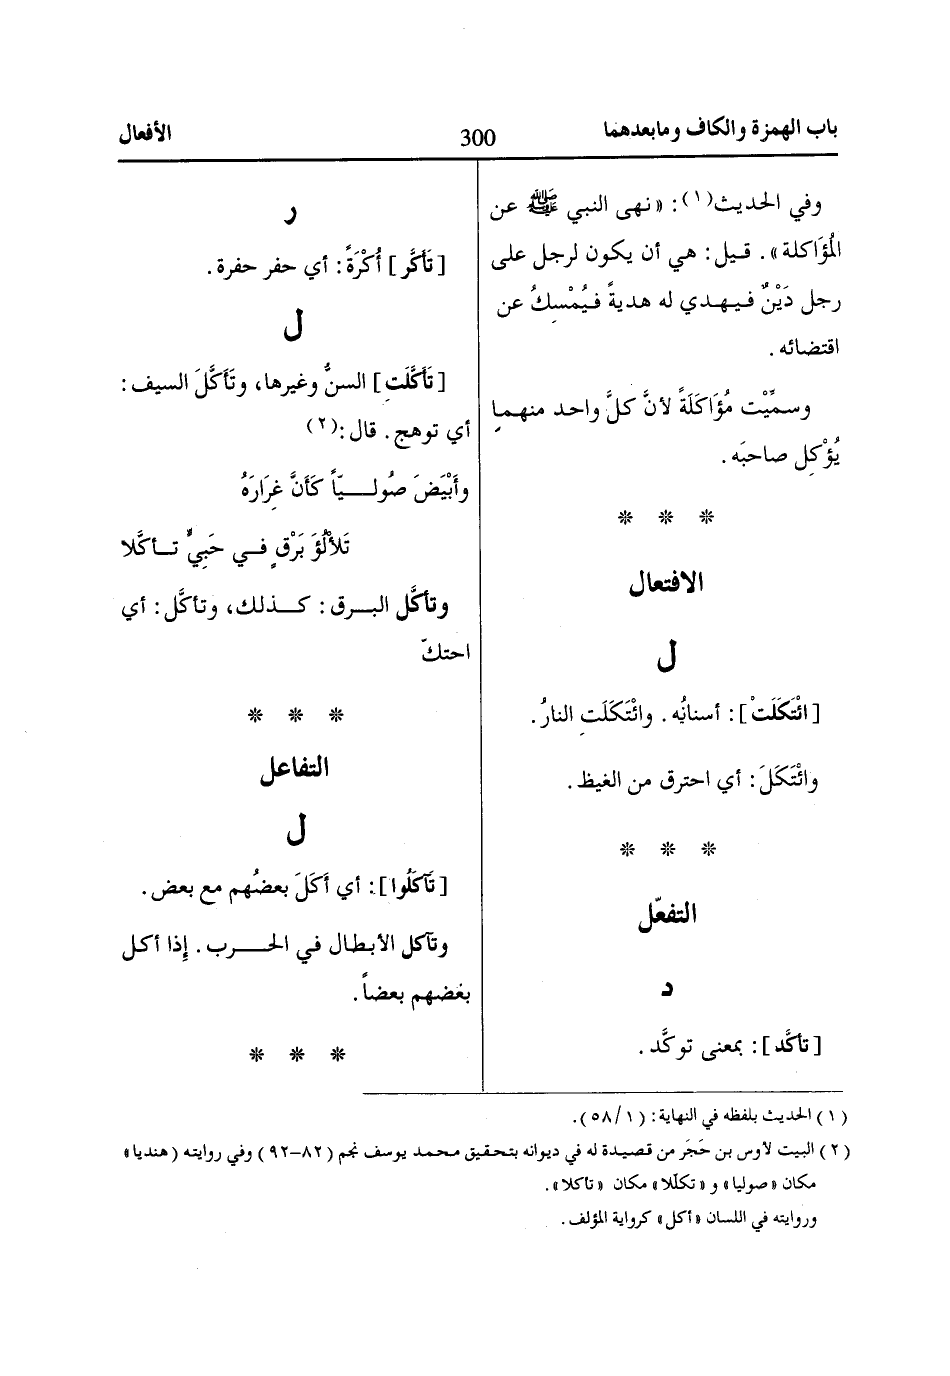 باب الهمزة والكاف ومابعدهما
300
الأفعال
وفي الحديث(١): «نهى النبي ﷺ عن
المُؤَاكلة». قيل: هي أن يكون لرجل على
رجل دَيْنٌ فيهدي له هديةً فيُمْسِكُ عن
اقتضائه.
وسمِّيْت مُؤَاكَلَةً لأنَّ كلَّ واحد منهما
يُؤْكِل صاحبَه.
* * *
الافتعال
ل
[ائْتَكَلَتْ]: أسنانُه. وائْتَكَلَتِ النارُ.
وائْتَكَلَ: أي احترق من الغيظ.
* * *
التفعّل
د
[تأكَّد]: بمعنى توكَّد.
ر
[تَأَكَّر] أُكْرَةً: أي حفر حفرة.
ل
[تَأَكَّلَتِ] السنُّ وغيرها، وتَأَكَّلَ السيف:
أي توهج. قال:(٢)
وأَبْيَضَ صُوليّاً كَأنَّ غِرَارَهُ
تَلأْلُؤَ بَرْقٍ في حَبِيٍّ تأكَّلا
وتأكَّل البرق: كذلك، وتأكَّل: أي
احتكّ
* * *
التفاعل
ل
[تَآكَلُوا]: أي أَكَلَ بعضُهم مع بعض.
وتآكل الأبطال في الحرب. إِذا أكل
بعضهم بعضاً.
* * *
(١) الحديث بلفظه في النهاية: (٥٨/١).
(٢) البيت لأوس بن حَجَر من قصيدة له في ديوانه بتحقيق محمد يوسف نجم (٨٢-٩٢) وفي روايته «هنديا»
مكان «صوليا» و «تكلّلا» مكان «تأكلا».
وروايته في اللسان «أكل» كرواية المؤلف.